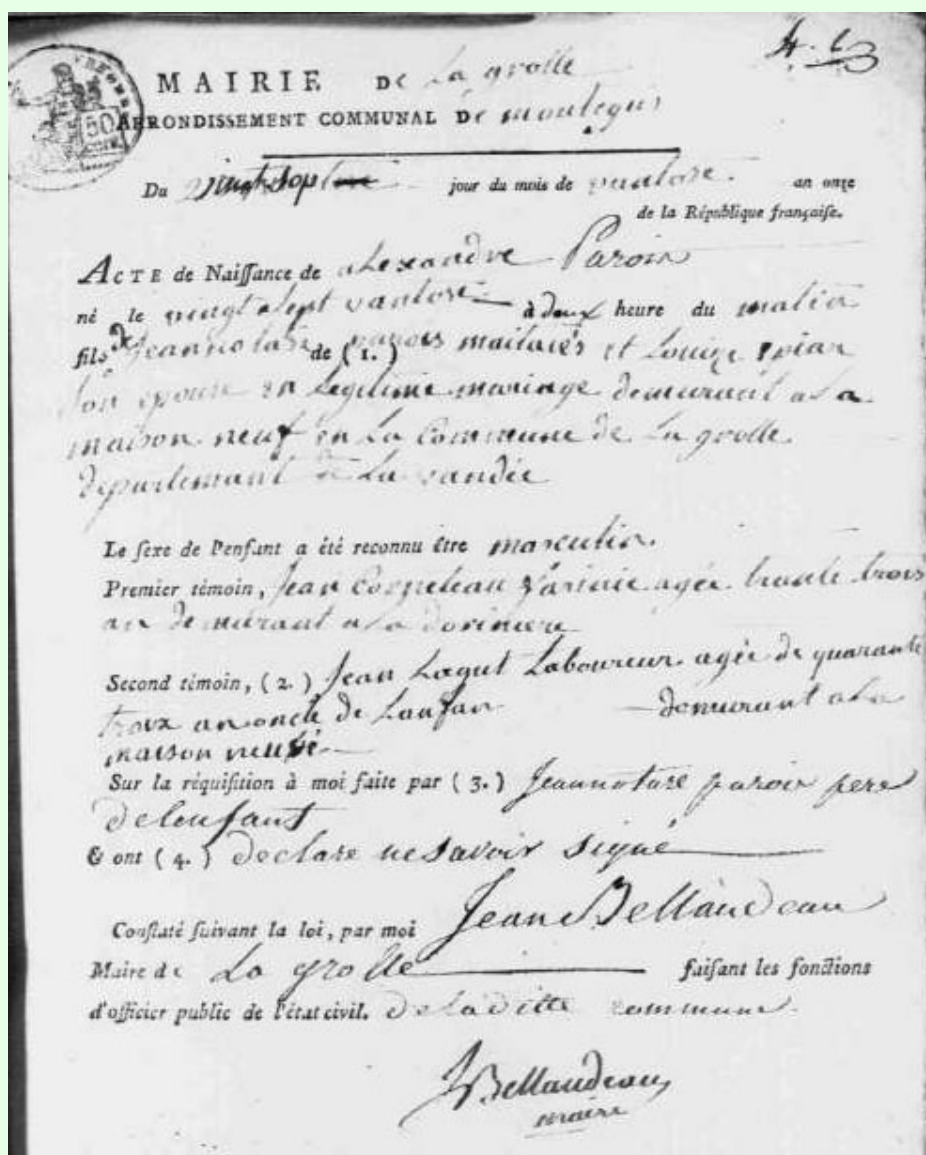 MAIRIE DE La grolle
ARRONDISSEMENT COMMUNAL De montegus
Du vingt sept jour du mois de vantose an onze
de la République françaiſe.
ACTE de Naiſſance de alexandre Parois
né le vingt sept vantose à deux heure du matin
fils de (1.) parois et Louize
son epouse en Legitime mariage demurant a La
maison neuf en La Commune de La grolle
departemant de La vandée
Le ſexe de l'enfant a été reconnu être masculin.
Premier témoin, Jean agée trante trois
an demurant a La dorimiere
Second témoin, (2.) Jean Laboureur agée de quarante
troix an oncle de Lanfan demurant a La
maison neuve
Sur la réquiſition à moi faite par (3.) parois pere
de lenfant
& ont (4.) declare ne savoir signé
Conſtaté ſuivant la loi, par moi Jean Bellaudeau
Maire de La grolle faiſant les fonctions
d'officier public de l'état civil. de la ditte commune
J Bellaudeau
maire